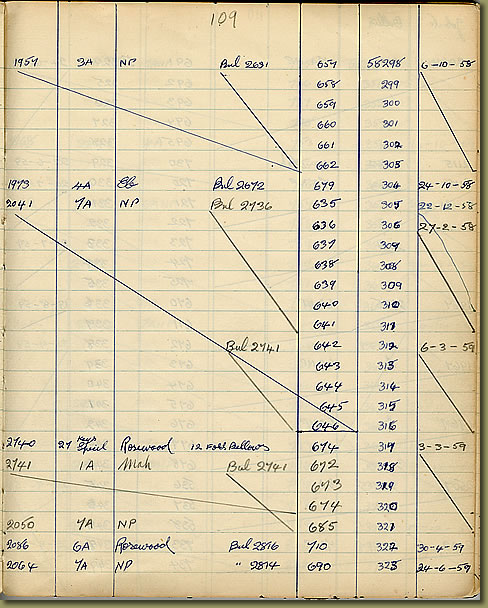 109
1957 3A NP Bul 2631 657 58298 6-10-58
658 299
659 300
660 301
661 302
662 303
1973 4A Eb Bul 2672 679 304 24-10-58
2041 7A NP Bul 2736 635 305 22-12-58
636 306 27-2-58
637 307
638 308
639 309
640 310
641 311
Bul 2741 642 312 6-3-59
643 313
644 314
645 315
646 316
2740 27 Keys Specil Rosewood 12 Fold Bellows 674 317 3-3-59
2741 1A Mah Bul 2741 672 318
673 319
674 320
2050 7A NP 685 321
2086 6A Rosewood Bul 2816 710 322 30-4-59
2064 7A NP " 2814 690 323 24-6-59